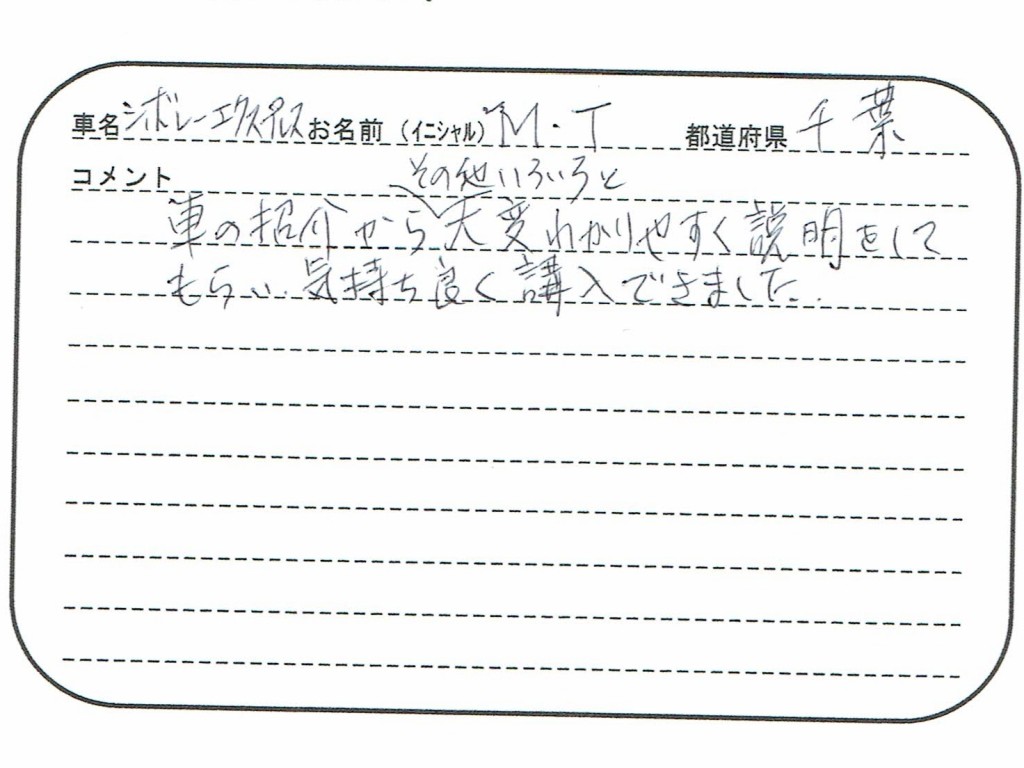 車名シボレーエクスプレスお名前（イニシャル）M・T 都道府県千葉
コメント
その他いろいろと
車の紹介から大変わかりやすく説明をして
もらい、気持ち良く講入できました。